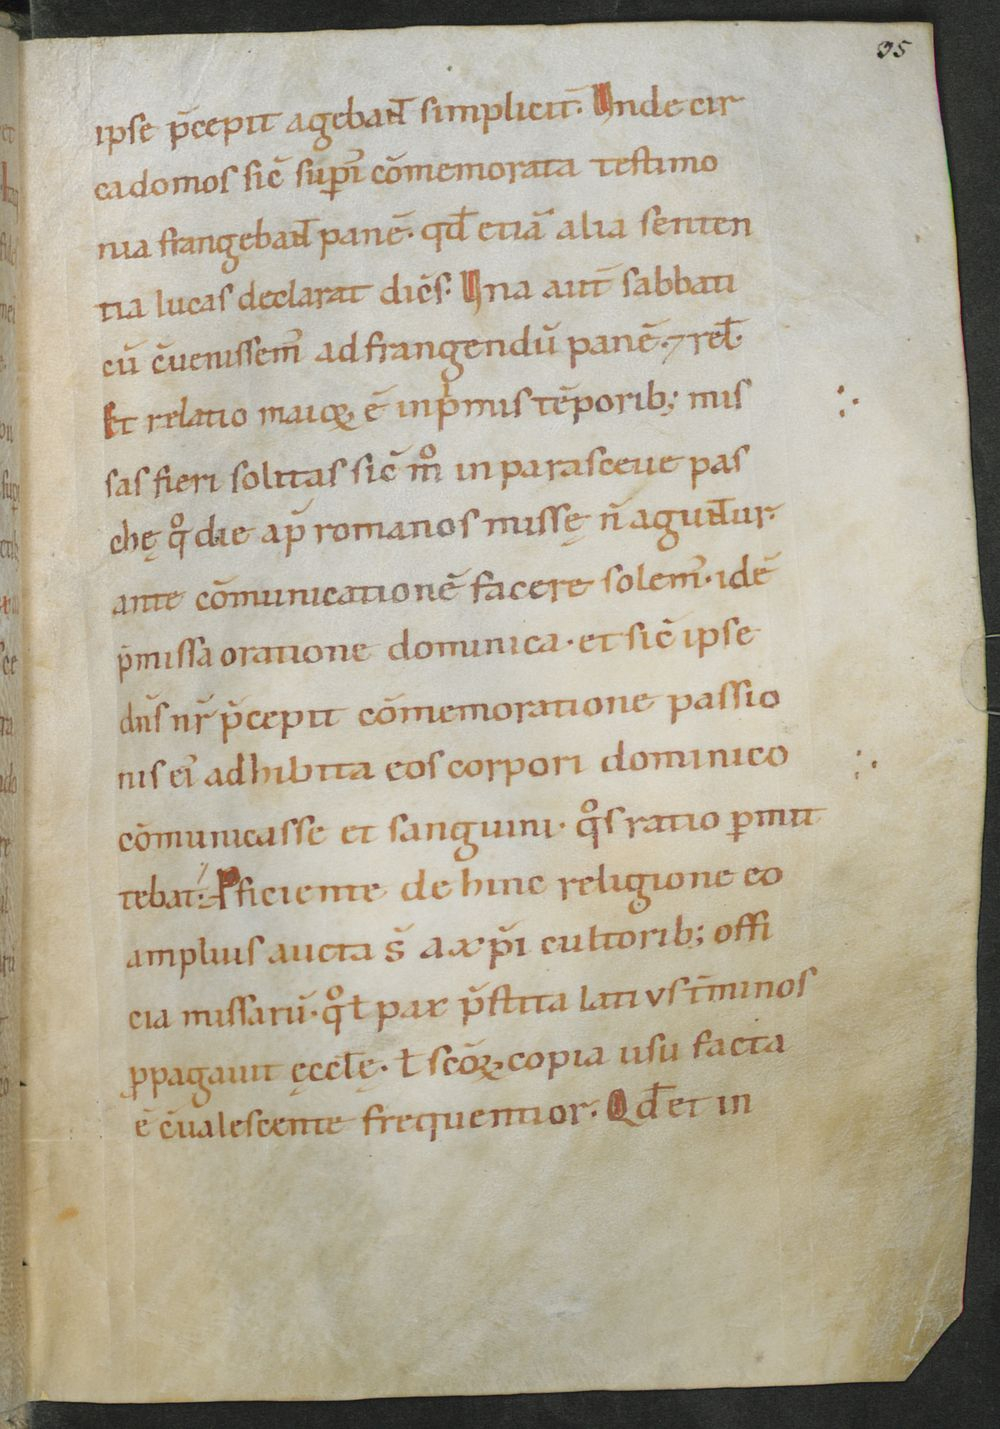 95
ipse p̄cepit agebant simplicit̄. Vnde cir
ca domos sic̄ sup̄i cōmemorata testimo
nia frangebant panē. qđ etiā alia senten
tia lucas declarat dic̄s. Vna aut̄ sabbati
cū c̄uenissem᷒ ad frangendū panē. ⁊ rel̄.
Et relatio maioꝝ ē in pⁱmis tēporib; mis
sas fieri solitas sic̄ m̊ in parasceue pas
chę q̊ die ap̄ romanos missę n̄ aguntur.
ante cōmunicationē facere solem᷒. idē
p̄missa oratione dominica. et sic̄ ipse
dn̄s nr̄ p̄cepit cōmemoratione passio
nis ei᷒ adhibita eos corpori dominico
cōmunicasse et sanguini. q̊s ratio ꝑmit
tebat. Ꝓficiente dehinc religione eo
amplius aucta s̄ a xp̄i cultorib; offi
cia missarū. q̊ ł pax p̄stita latius t̄minos
ꝓpagauit ęccłę. ł sc̄oꝝ copia usu facta
ē c̄ualescente frequentior. Qđ et in